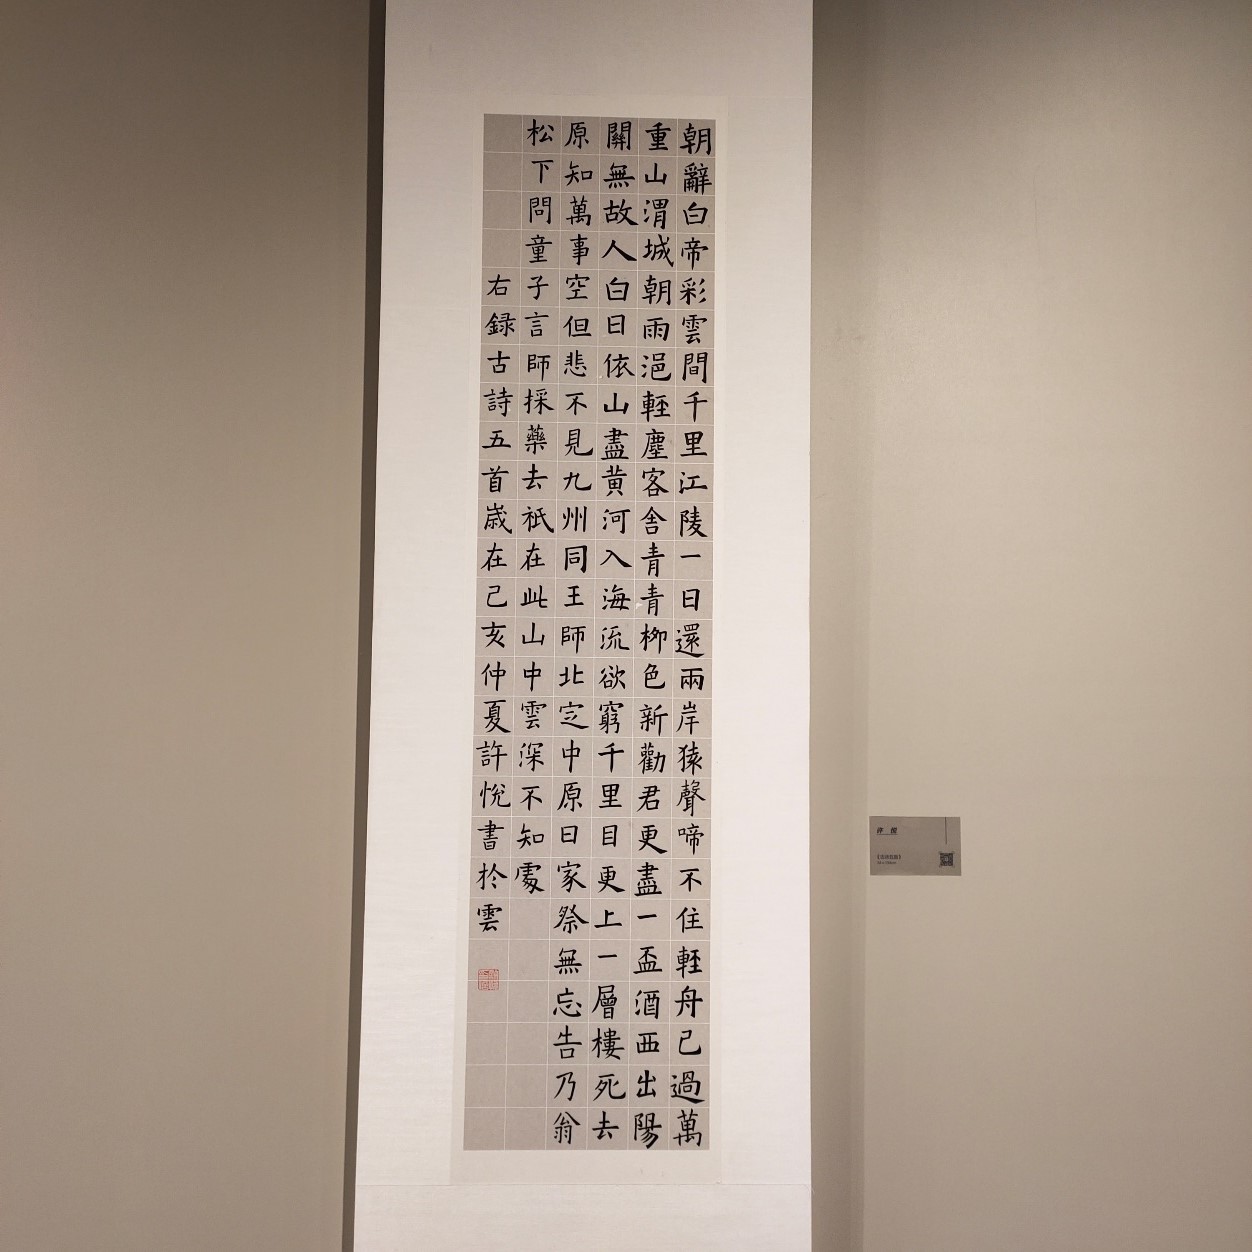 朝辭白帝彩雲間千里江陵一日還兩岸猿聲啼不住輕舟已過萬
重山渭城朝雨浥輕塵客舍青青柳色新勸君更盡一盃酒西出陽
關無故人白日依山盡黃河入海流欲窮千里目更上一層樓死去
原知萬事空但悲不見九州同王師北定中原日家祭無忘告乃翁
松下問童子言師採藥去祇在此山中雲深不知處
右録古詩五首歲在己亥仲夏許悅書於雲